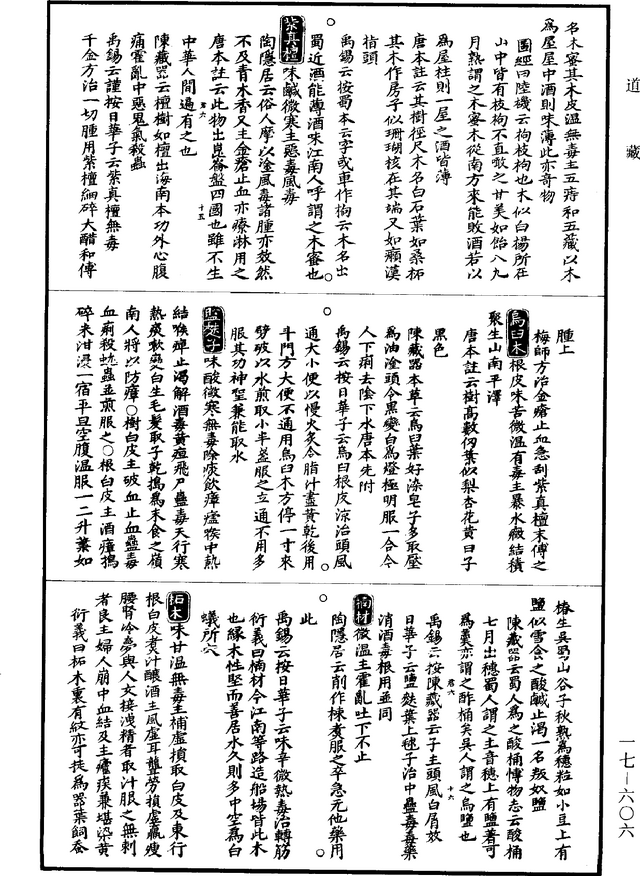 道藏
名木蜜其木皮溫無毒主五痔和五藏以木
為屋屋中酒則味薄此亦奇物
圖經曰陸機云枸枝枸也木似白楊所在
山中皆有枝枸不直噉之甘美如飴八九
月熟謂之木蜜木從南方來能敗酒若以
為屋柱則一屋之酒皆薄
唐本註云其樹徑尺木名白石葉如桑柘
其木作房子似珊瑚核在其端人皆食之
指頭
禹錫云按蜀本云字或單作枸云木名出
蜀近酒能薄酒味江南人呼謂之木蜜也
紫真檀味鹹微寒主惡毒風毒
陶隱居云俗人摩以塗風毒諸腫亦效然
不及青木香又主金瘡止血亦療淋用之
唐本註云此物出崑崙盤盤國也雖不生
中華人間遍有之也
陳藏器云檀樹如檀出海南本功外心腹
痛霍亂中惡鬼氣殺蟲
禹錫云謹按日華子云紫真檀無毒
千金方治一切腫用紫檀細碎大醋和傅
腫上
梅師方治金瘡止血急刮紫真檀末傅之
烏臼木根皮味苦微溫有毒主暴水癥結積
聚生山南平澤
唐本註云樹高數仞葉似梨杏花黃白子
黑色
陳藏器本草云烏臼葉好染皂子多取壓
為油塗頭令黑變白為燈極明服一合令
人下痢去陰下水唐本先附
禹錫云按日華子云烏臼根皮涼治頭風
通大小便以慢火炙令脂汁盡黃乾後用
斗門方大便不通用烏臼木方停一寸來
劈破以水煎取小半盞服之立通不用多
服其功神聖兼能取水
鹽麩子味酸微寒無毒除痰飲瘴瘧喉中熱
結喉痺止渴解酒毒黃疸飛尸蠱毒天行寒
熱痰欬變白生毛髮取子乾搗為末食之嶺
南人將以防瘴○樹白皮主破血止血蠱毒
血痢殺蚘蟲並煎服之○根白皮主酒疸搗
碎米泔浸一宿平旦空腹溫服一二升葉如
椿生吳蜀山谷子秋熟為穗粒如小豆上有
鹽似雪食之酸鹹止渴一名叛奴鹽
陳藏器云蜀人為之酸桶博物志云酸桶
七月出穗蜀人謂之主音穗上有鹽著可
為羹亦謂之酢桶矣吳人謂之烏鹽也
禹錫云按陳藏器云子主頭風白屑效
日華子云鹽麩葉上毬子治中蠱毒毒藥
消酒毒根用並同
楠材微溫主霍亂吐下不止
陶隱居云削作柹煮服之卒急无他藥用
此
禹錫云按日華子云味辛微熱毒治轉筋
衍義曰楠材今江南等路造船場皆此木
也緣木性堅而善居水久則多中空為白
蟻所穴
柘木味甘溫無毒主補虛損取白皮及東行
根白皮煮汁釀酒主風虛耳聾勞損虛羸瘦
腰腎冷夢與人交接洩精者取汁服之無刺
者良主婦人崩中血結及主瘧疾兼堪染黃
衍義曰柘木裏有紋亦可旋為器葉飼蠶
一七—六〇六